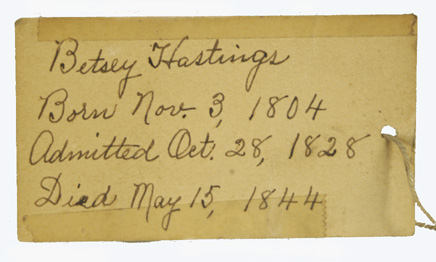 Betsey Hastings
Born Nov. 3, 1804
Admitted Oct. 28, 1828
Died May 15, 1844